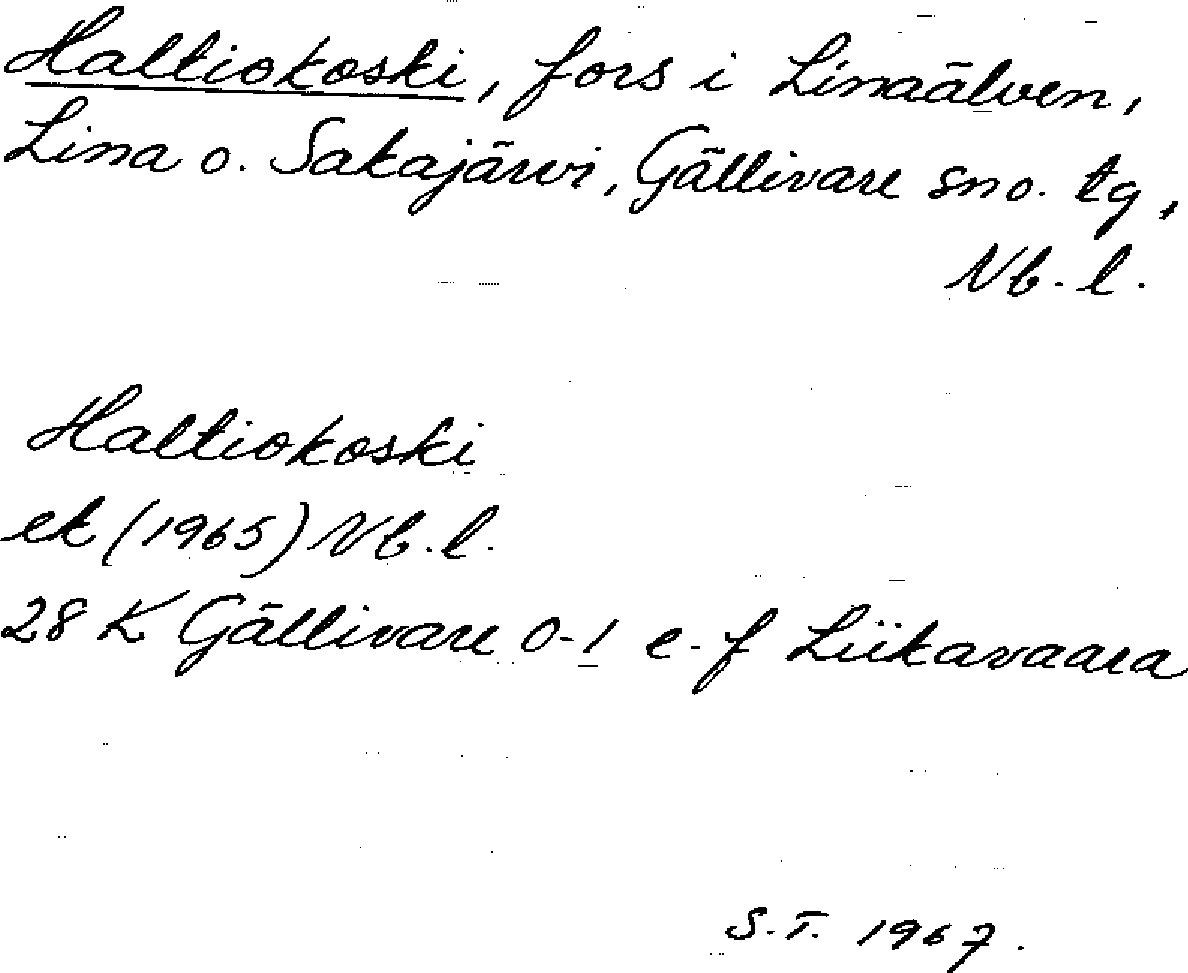 Haltiokoski, fors i Linaälven,
Lina o. Sakajärvi, Gällivare sn o. tg,
Nb. l.
Haltiokoski
ek (1965) Nb. l.
28 K Gällivare 0-1 e-f Liikavaara
S.T. 1967.